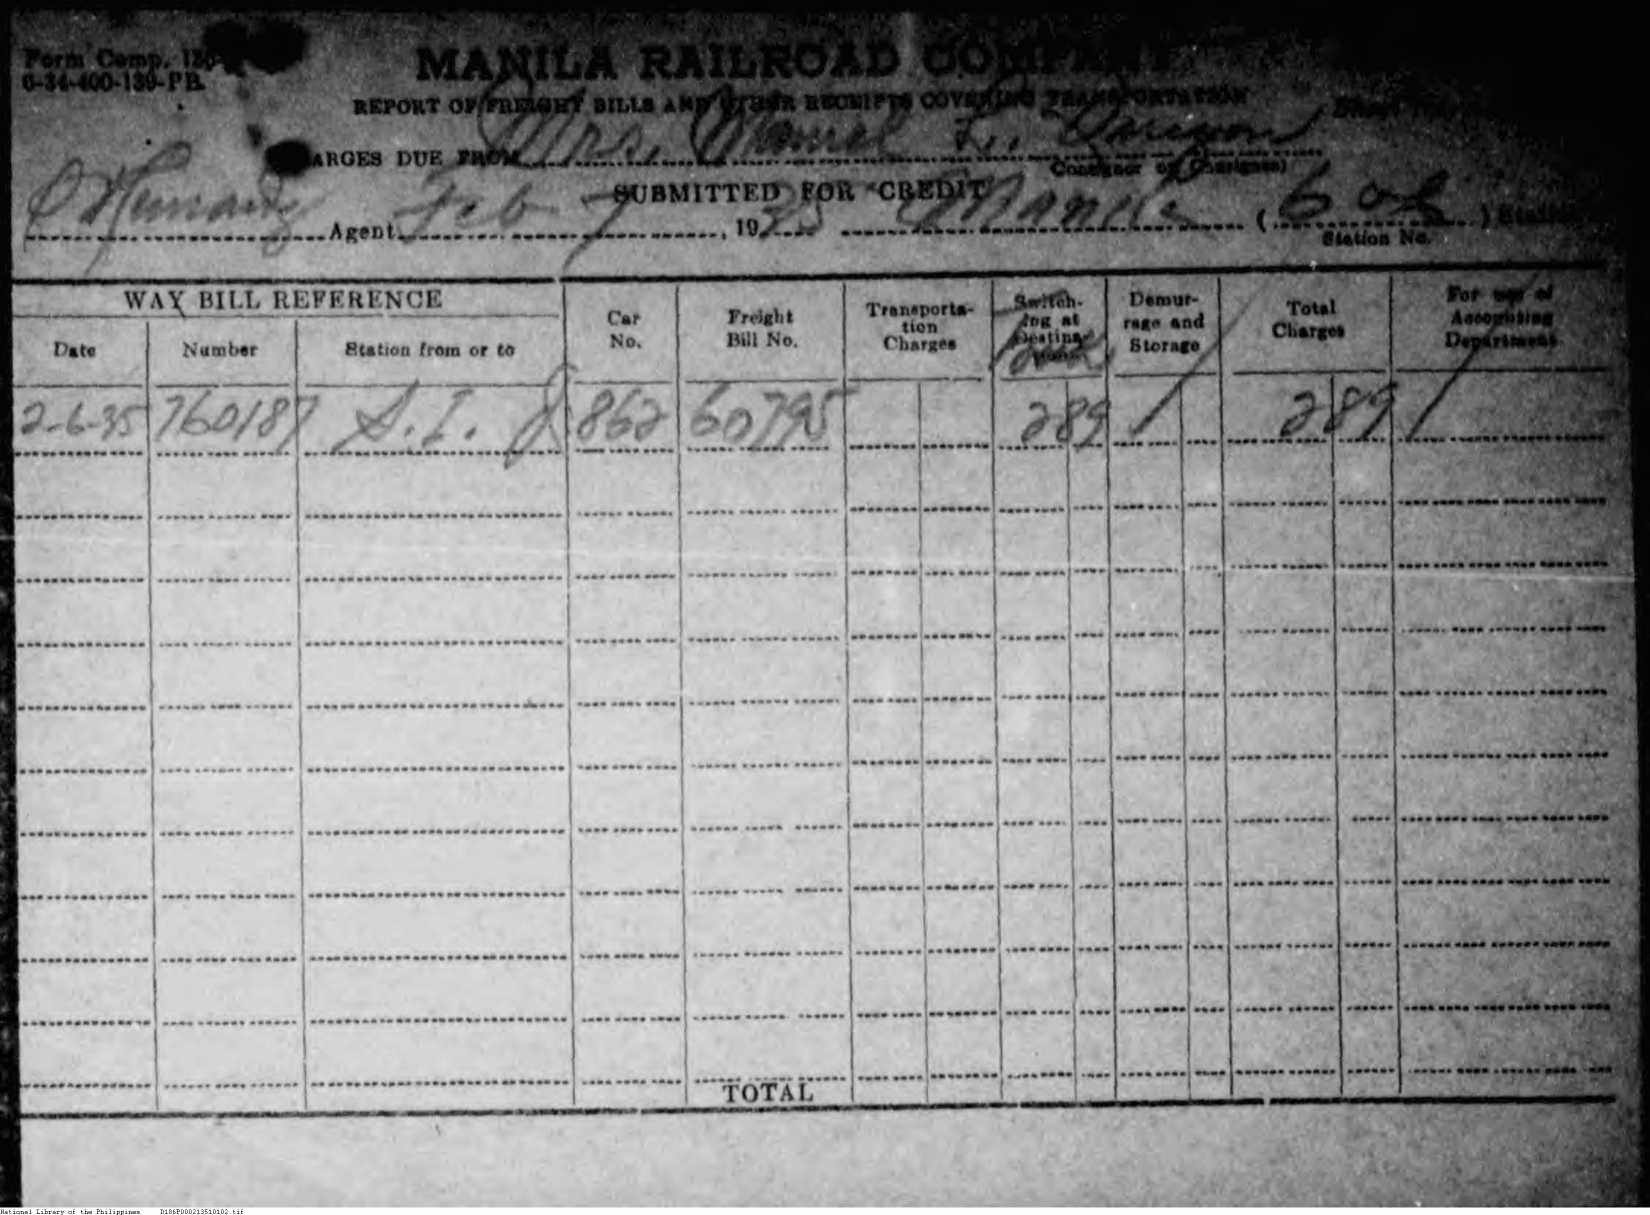 Form Comp.
6-34-400-139-PB.
MANILA RAILROAD COMPANY
REPORT OF FREIGHT BILLS AND OTHER RECEIPTS COVERING TRANSPORTATION
ARGES DUE FROM Mrs. Manuel L. Quezon
Consignor or Consignee)
SUBMITTED FOR CREDIT
Agent Feb 7, 1935 (602)
Station No.
WAY BILL REFERENCE
Date Number Station from or to Car No. Freight Bill No. Transporta-tion Charges Switch-ing at Demur-rage and Storage Total Charges For use of Accounting Department
2-6-35 760187 S. I. 862 60795 2 89 2 89
TOTAL
National Library of the Philippines D186P000213510102.tif